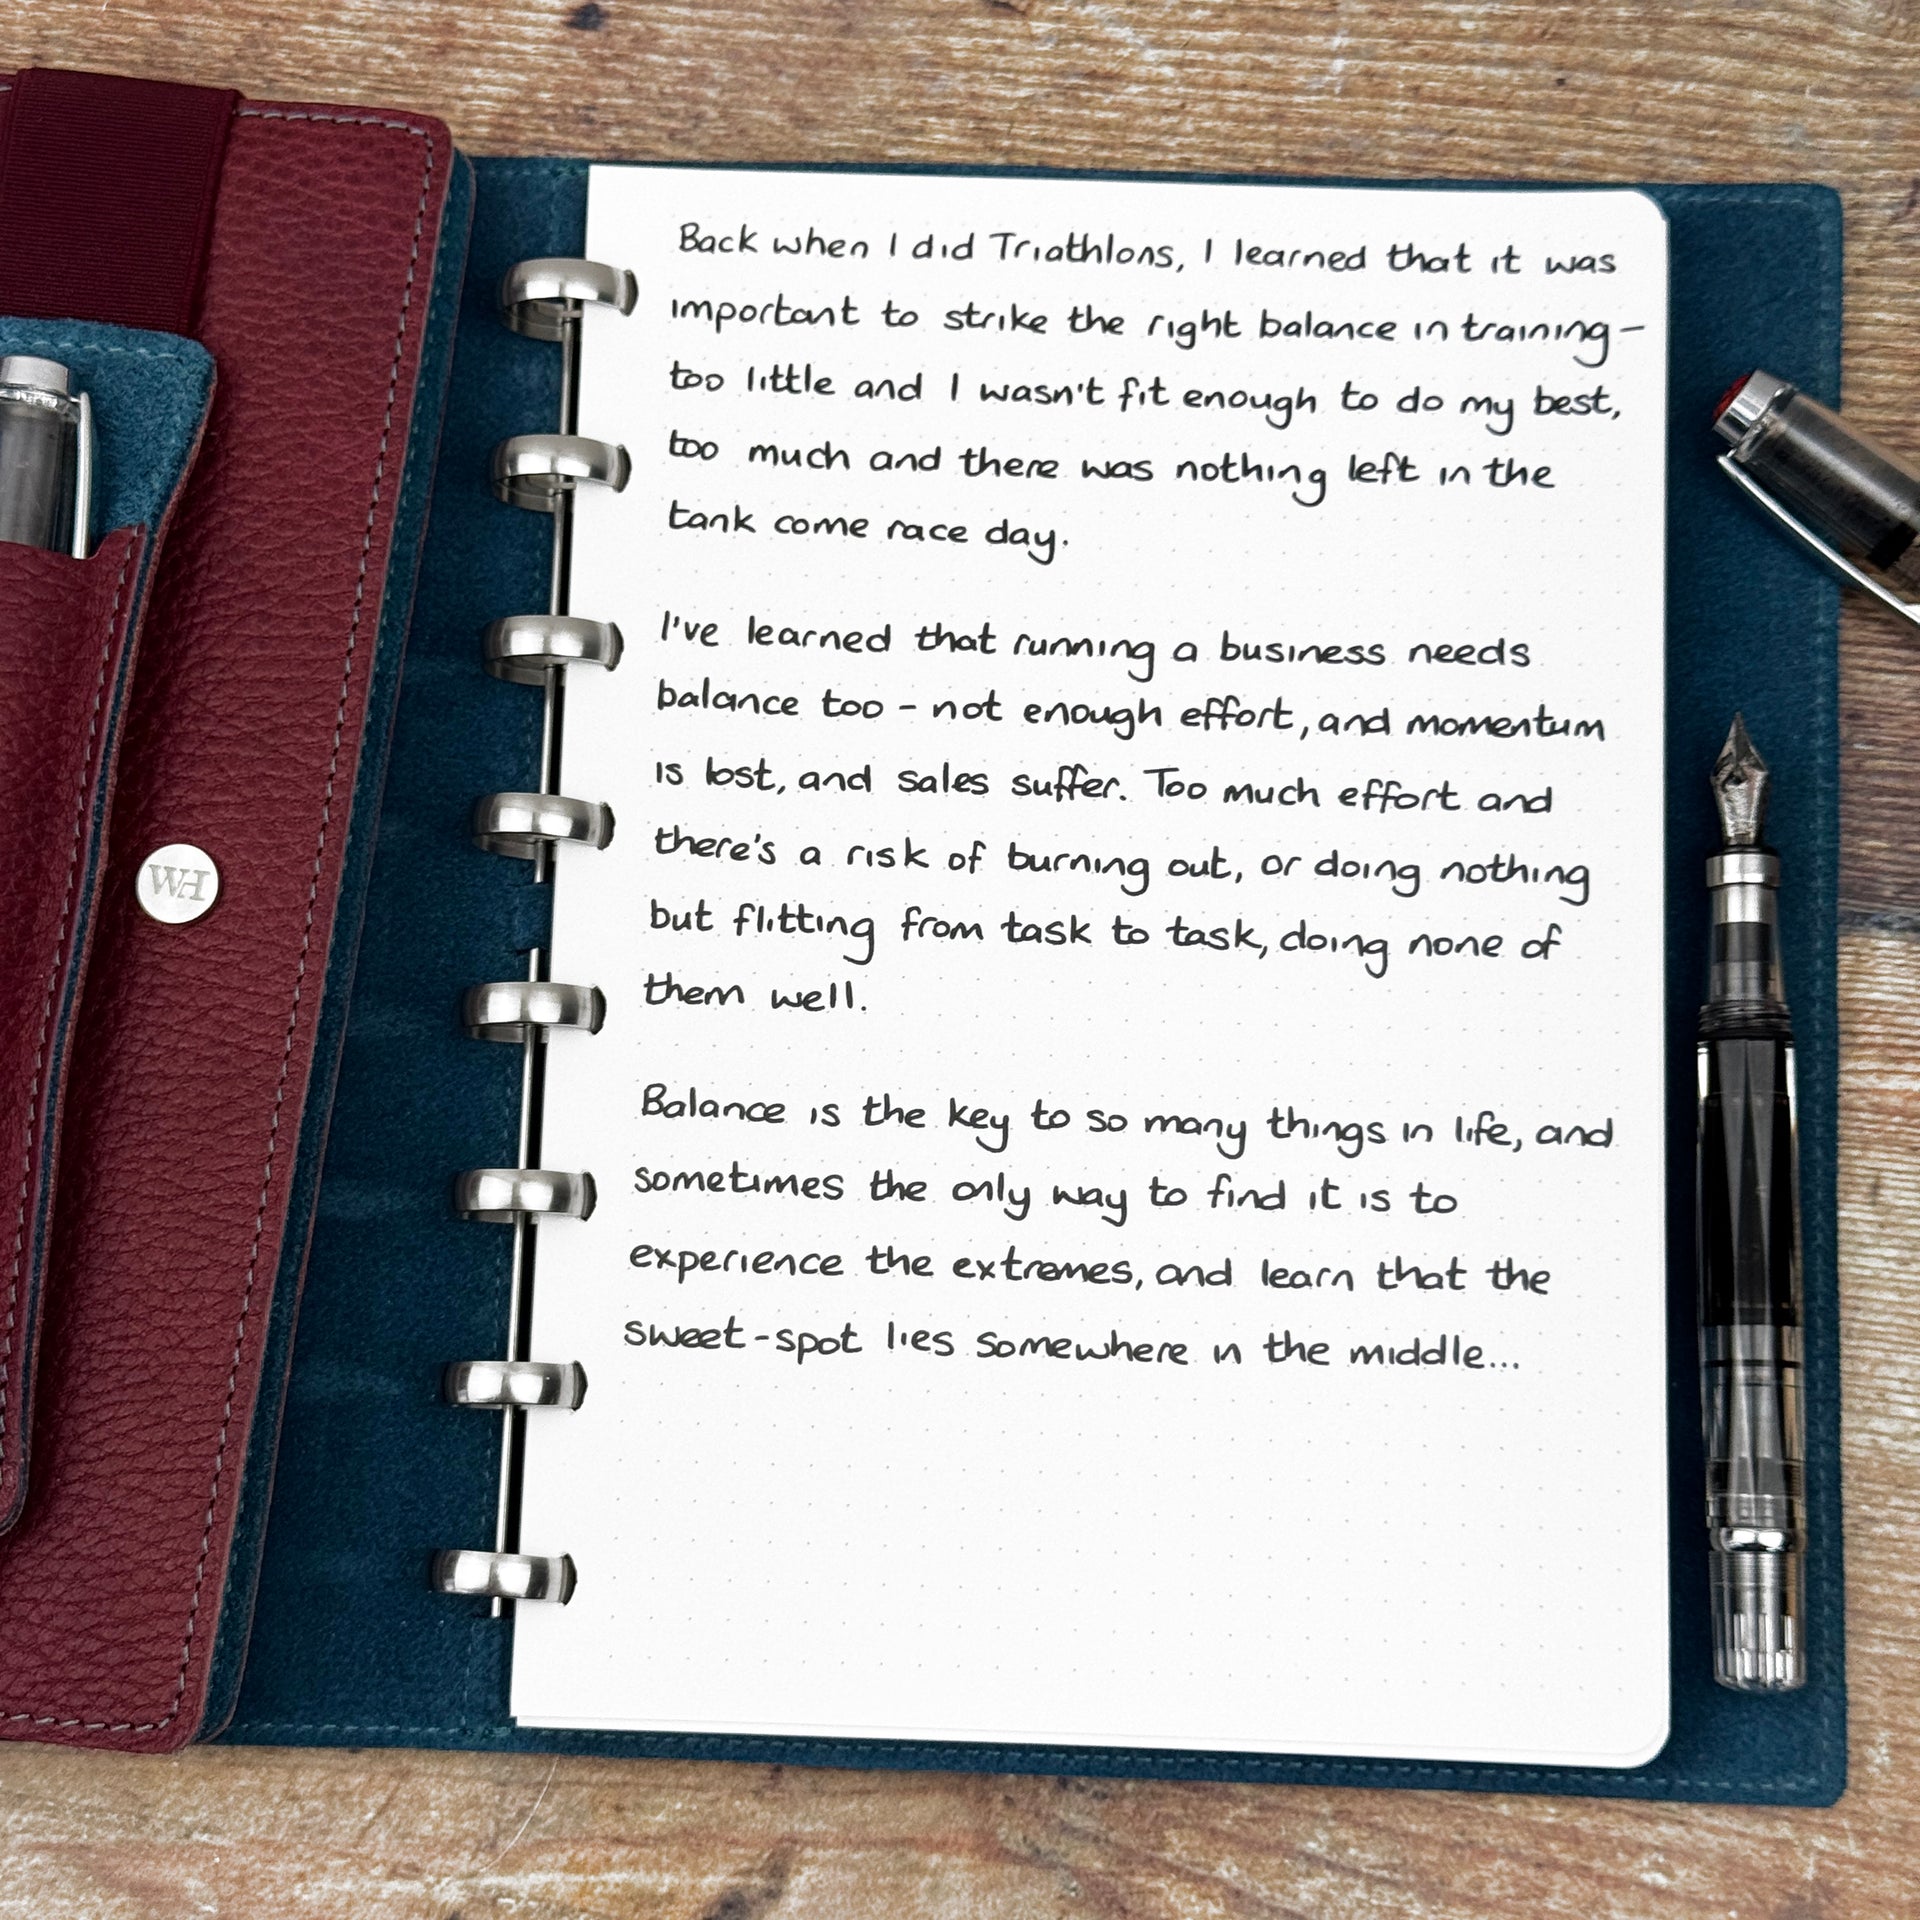 Back when I did Triathlons, I learned that it was
important to strike the right balance in training –
too little and I wasn't fit enough to do my best,
too much and there was nothing left in the
tank come race day.
I've learned that running a business needs
balance too – not enough effort, and momentum
is lost, and sales suffer. Too much effort and
there's a risk of burning out, or doing nothing
but flitting from task to task, doing none of
them well.
Balance is the key to so many things in life, and
sometimes the only way to find it is to
experience the extremes, and learn that the
sweet-spot lies somewhere in the middle...
WH